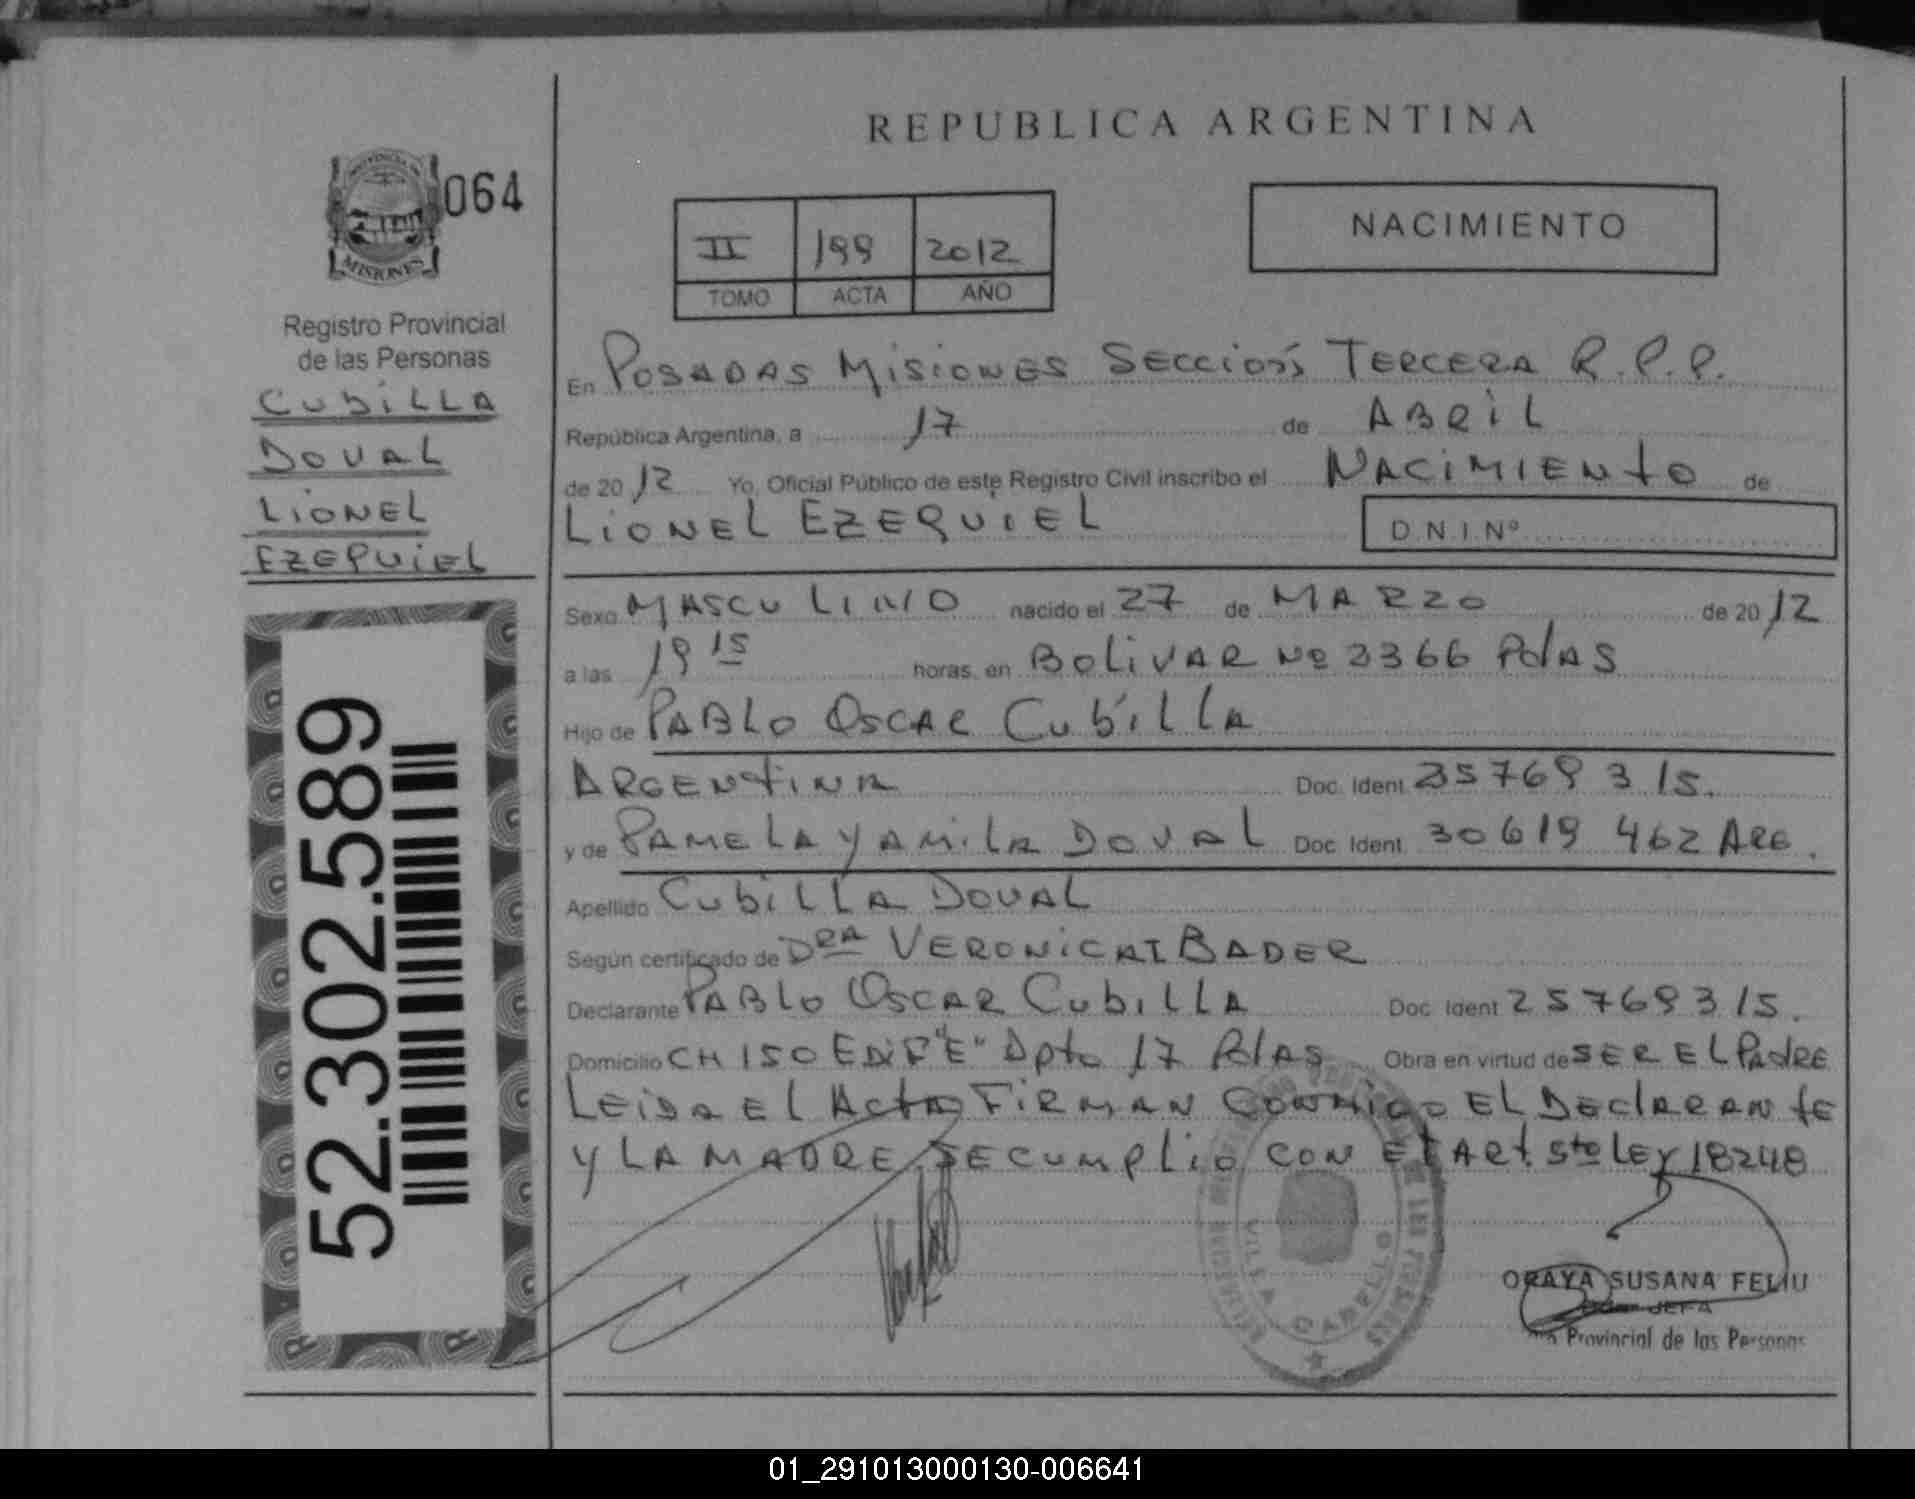 REPUBLICA ARGENTINA
PROVINCIA DE
MISIONES
064
II 199 2012
TOMO ACTA AÑO
NACIMIENTO
Registro Provincial
de las Personas
CUBILLA
DOVAL
LIONEL
EZEQUIEL
52.302.589
En POSADAS MISIONES SECCIÓN TERCERA R.P.P.
República Argentina, a 17 de ABRIL
de 2012 Yo, Oficial Público de este Registro Civil inscribo el NACIMIENTO de
LIONEL EZEQUIEL D.N.I.Nº
Sexo MASCULINO nacido el 27 de MARZO de 2012
a las 19 15 horas, en BOLIVAR Nº 2366 PdAS
Hijo de PABLO OSCAR CUBILLA
ARGENTINA Doc. Ident. 25769315.
y de PAMELA YAMILA DOVAL Doc. Ident. 30619462 ARG.
Apellido CUBILLA DOVAL
Según certificado de DRA VERONICA I BADER
Declarante PABLO OSCAR CUBILLA Doc. Ident 25769315.
Domicilio CH 150 EDIF "E" Dpto 17 PdAS Obra en virtud de SER EL PAdRE
LEIDA EL ACTA FIRMAN CONMIGO EL DECLARANTE
Y LA MADRE. SE CUMPLIO CON EL ART. 5to LEY 18248
VILLA CABELLO
ORAYA SUSANA FELIU
JEFA
Provincial de las Personas
01_291013000130-006641